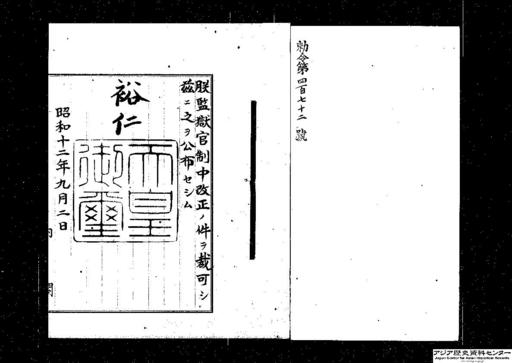 勅令第四百七十二號
朕監獄官制中改正ノ件ヲ裁可シ
茲ニ之ヲ公布セシム
裕仁
天皇御璽
昭和十二年九月二日
内閣
アジア歴史資料センター
Japan Center for Asian Historical Records